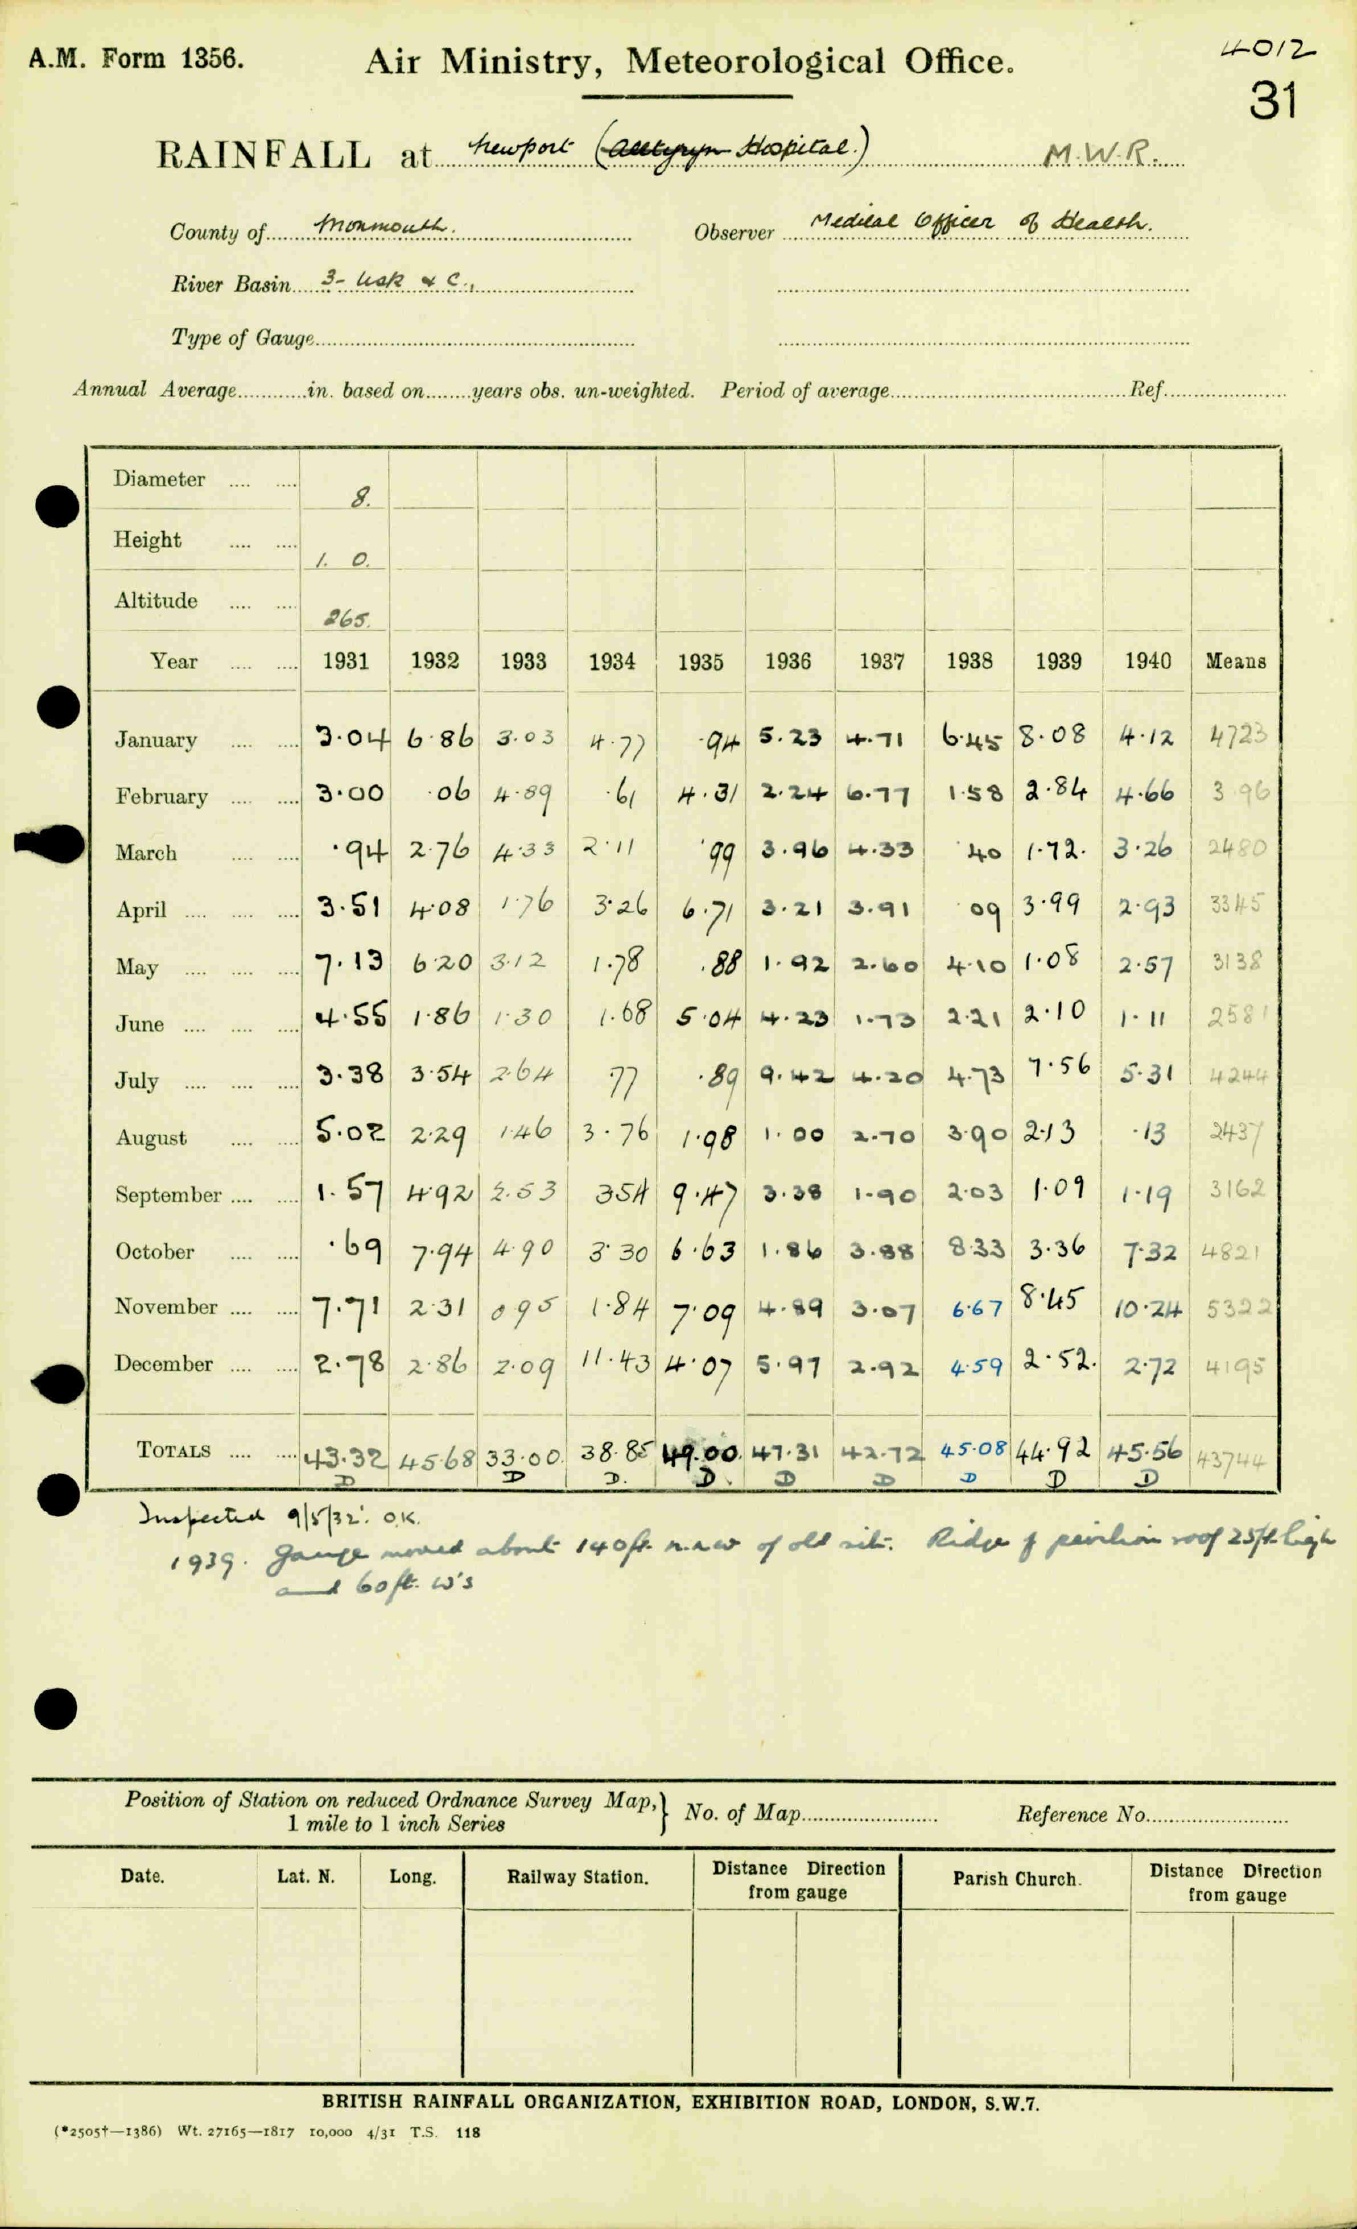 A.M. Form 1356.
Air Ministry, Meteorological Office.
4012
31
RAINFALL at Newport (Allt-yr-yn Hospital.) M.W.R.
County of Monmouth. Observer Medical Officer of Health.
River Basin 3- Usk & C.,
Type of Gauge
Annual Average in. based on years obs. un-weighted. Period of average Ref.
Diameter 8.
Height 1. 0.
Altitude 265.
Year 1931 1932 1933 1934 1935 1936 1937 1938 1939 1940 Means
January 3.04 6.86 3.03 4.77 .94 5.23 4.71 6.45 8.08 4.12 4723
February 3.00 .06 4.89 .61 4.31 2.24 6.77 1.58 2.84 4.66 3 96
March .94 2.76 4.33 2.11 .99 3.96 4.33 .40 1.72. 3.26 2480
April 3.51 4.08 1.76 3.26 6.71 3.21 3.91 09 3.99 2.93 3345
May 7.13 6.20 3.12 1.78 .88 1.92 2.60 4.10 1.08 2.57 3138
June 4.55 1.86 1.30 1.68 5.04 4.23 1.73 2.21 2.10 1.11 2581
July 3.38 3.54 2.64 77 .89 9.42 4.20 4.73 7.56 5.31 4244
August 5.02 2.29 1.46 3.76 1.98 1.00 2.70 3.90 2.13 .13 2437
September 1.57 4.92 2.53 354 9.47 3.38 1.90 2.03 1.09 1.19 3162
October .69 7.94 4.90 3.30 6.63 1.86 3.88 8.33 3.36 7.32 4821
November 7.71 2.31 095 1.84 7.09 4.89 3.07 6.67 8.45 10.24 5322
December 2.78 2.86 2.09 11.43 4.07 5.97 2.92 4.59 2.52. 2.72 4195
TOTALS 43.32 45.68 33.00 38.85 49.00. 47.31 42.72 45.08 44.92 45.56 43744
D D D. D. D D D D D
Inspected 9/5/32. O.K.
1939. Gauge moved about 140ft. n.n.w of old site. Ridge of pavilion roof 25ft. high
and 60ft. W's
Position of Station on reduced Ordnance Survey Map, } No. of Map Reference No.
1 mile to 1 inch Series
Date. Lat. N. Long. Railway Station. Distance Direction from gauge Parish Church. Distance Direction from gauge
BRITISH RAINFALL ORGANIZATION, EXHIBITION ROAD, LONDON, S.W.7.
(*2505†—1386) Wt. 27165—1817 10,000 4/31 T.S. 118